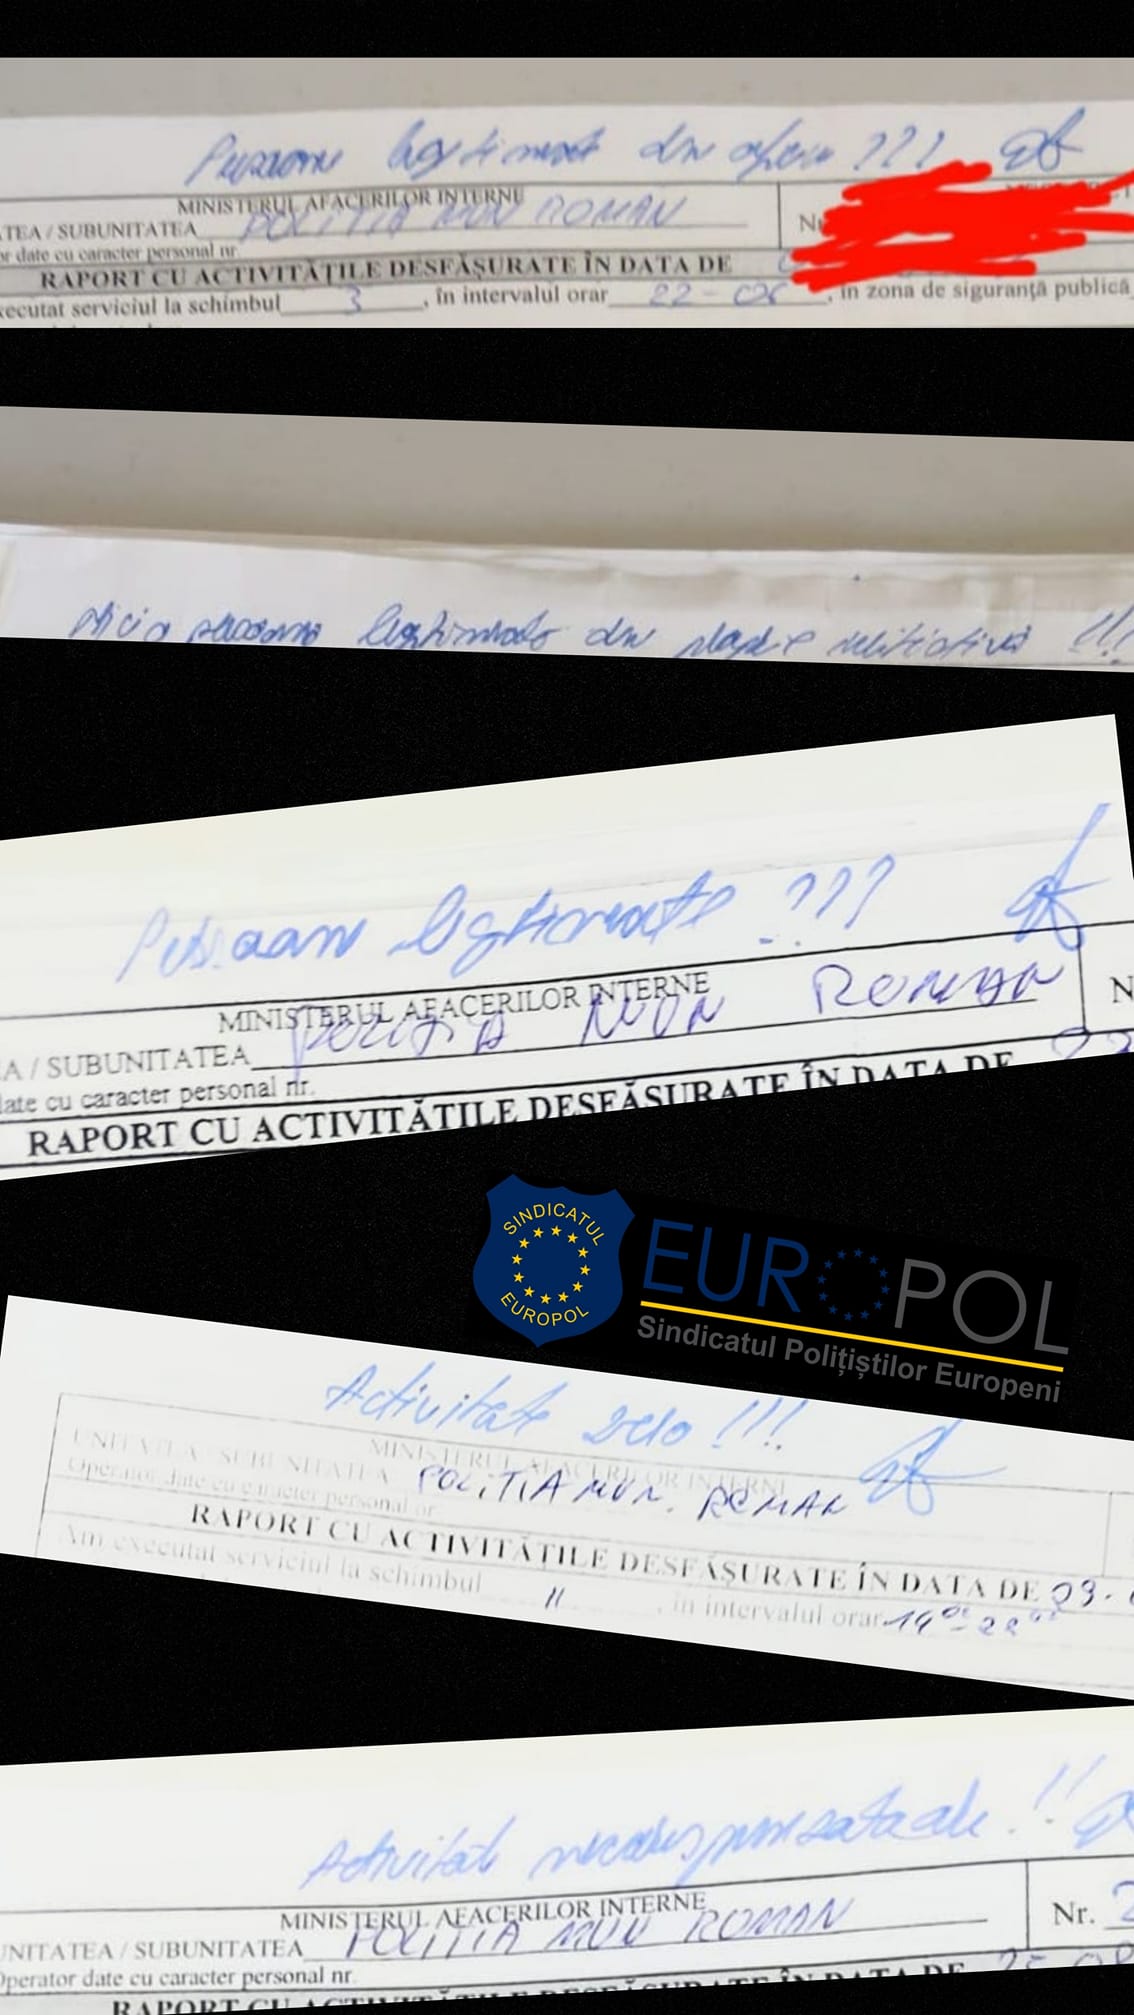 Persoane legitimate din oficiu ???
MINISTERUL AFACERILOR INTERNE
TEA / SUBUNITATEA POLITIA MUN ROMAN
or date cu caracter personal nr.
RAPORT CU ACTIVITĂŢILE DESFĂŞURATE ÎN DATA DE
xecutat serviciul la schimbul 3, în intervalul orar 22-06, în zona de siguranţă publică
Nicio persoana legitimata din plaja infractională !!!
Persoane legitimate ???
MINISTERUL AFACERILOR INTERNE
A / SUBUNITATEA POLITIA MUN ROMAN
N
date cu caracter personal nr.
RAPORT CU ACTIVITĂŢILE DESFĂŞURATE ÎN DATA DE
SINDICATUL
EUROPOL
EUROPOL
Sindicatul Polițiștilor Europeni
Activitate zero !!!
MINISTERUL AFACERILOR INTERNE
UNITATEA / SUBUNITATEA POLITIA MUN. ROMAN
Operator date cu caracter personal nr
RAPORT CU ACTIVITĂŢILE DESFĂŞURATE ÎN DATA DE 09.
Am executat serviciul la schimbul II, în intervalul orar 14⁰⁰-22⁰⁰
Activitate necorespunzatoare !!
MINISTERUL AFACERILOR INTERNE
Nr. 2
UNITATEA / SUBUNITATEA POLITIA MUN ROMAN
Operator date cu caracter personal nr.
RAPORT CU ACTIVITĂŢILE DESFĂŞURATE ÎN DATA DE